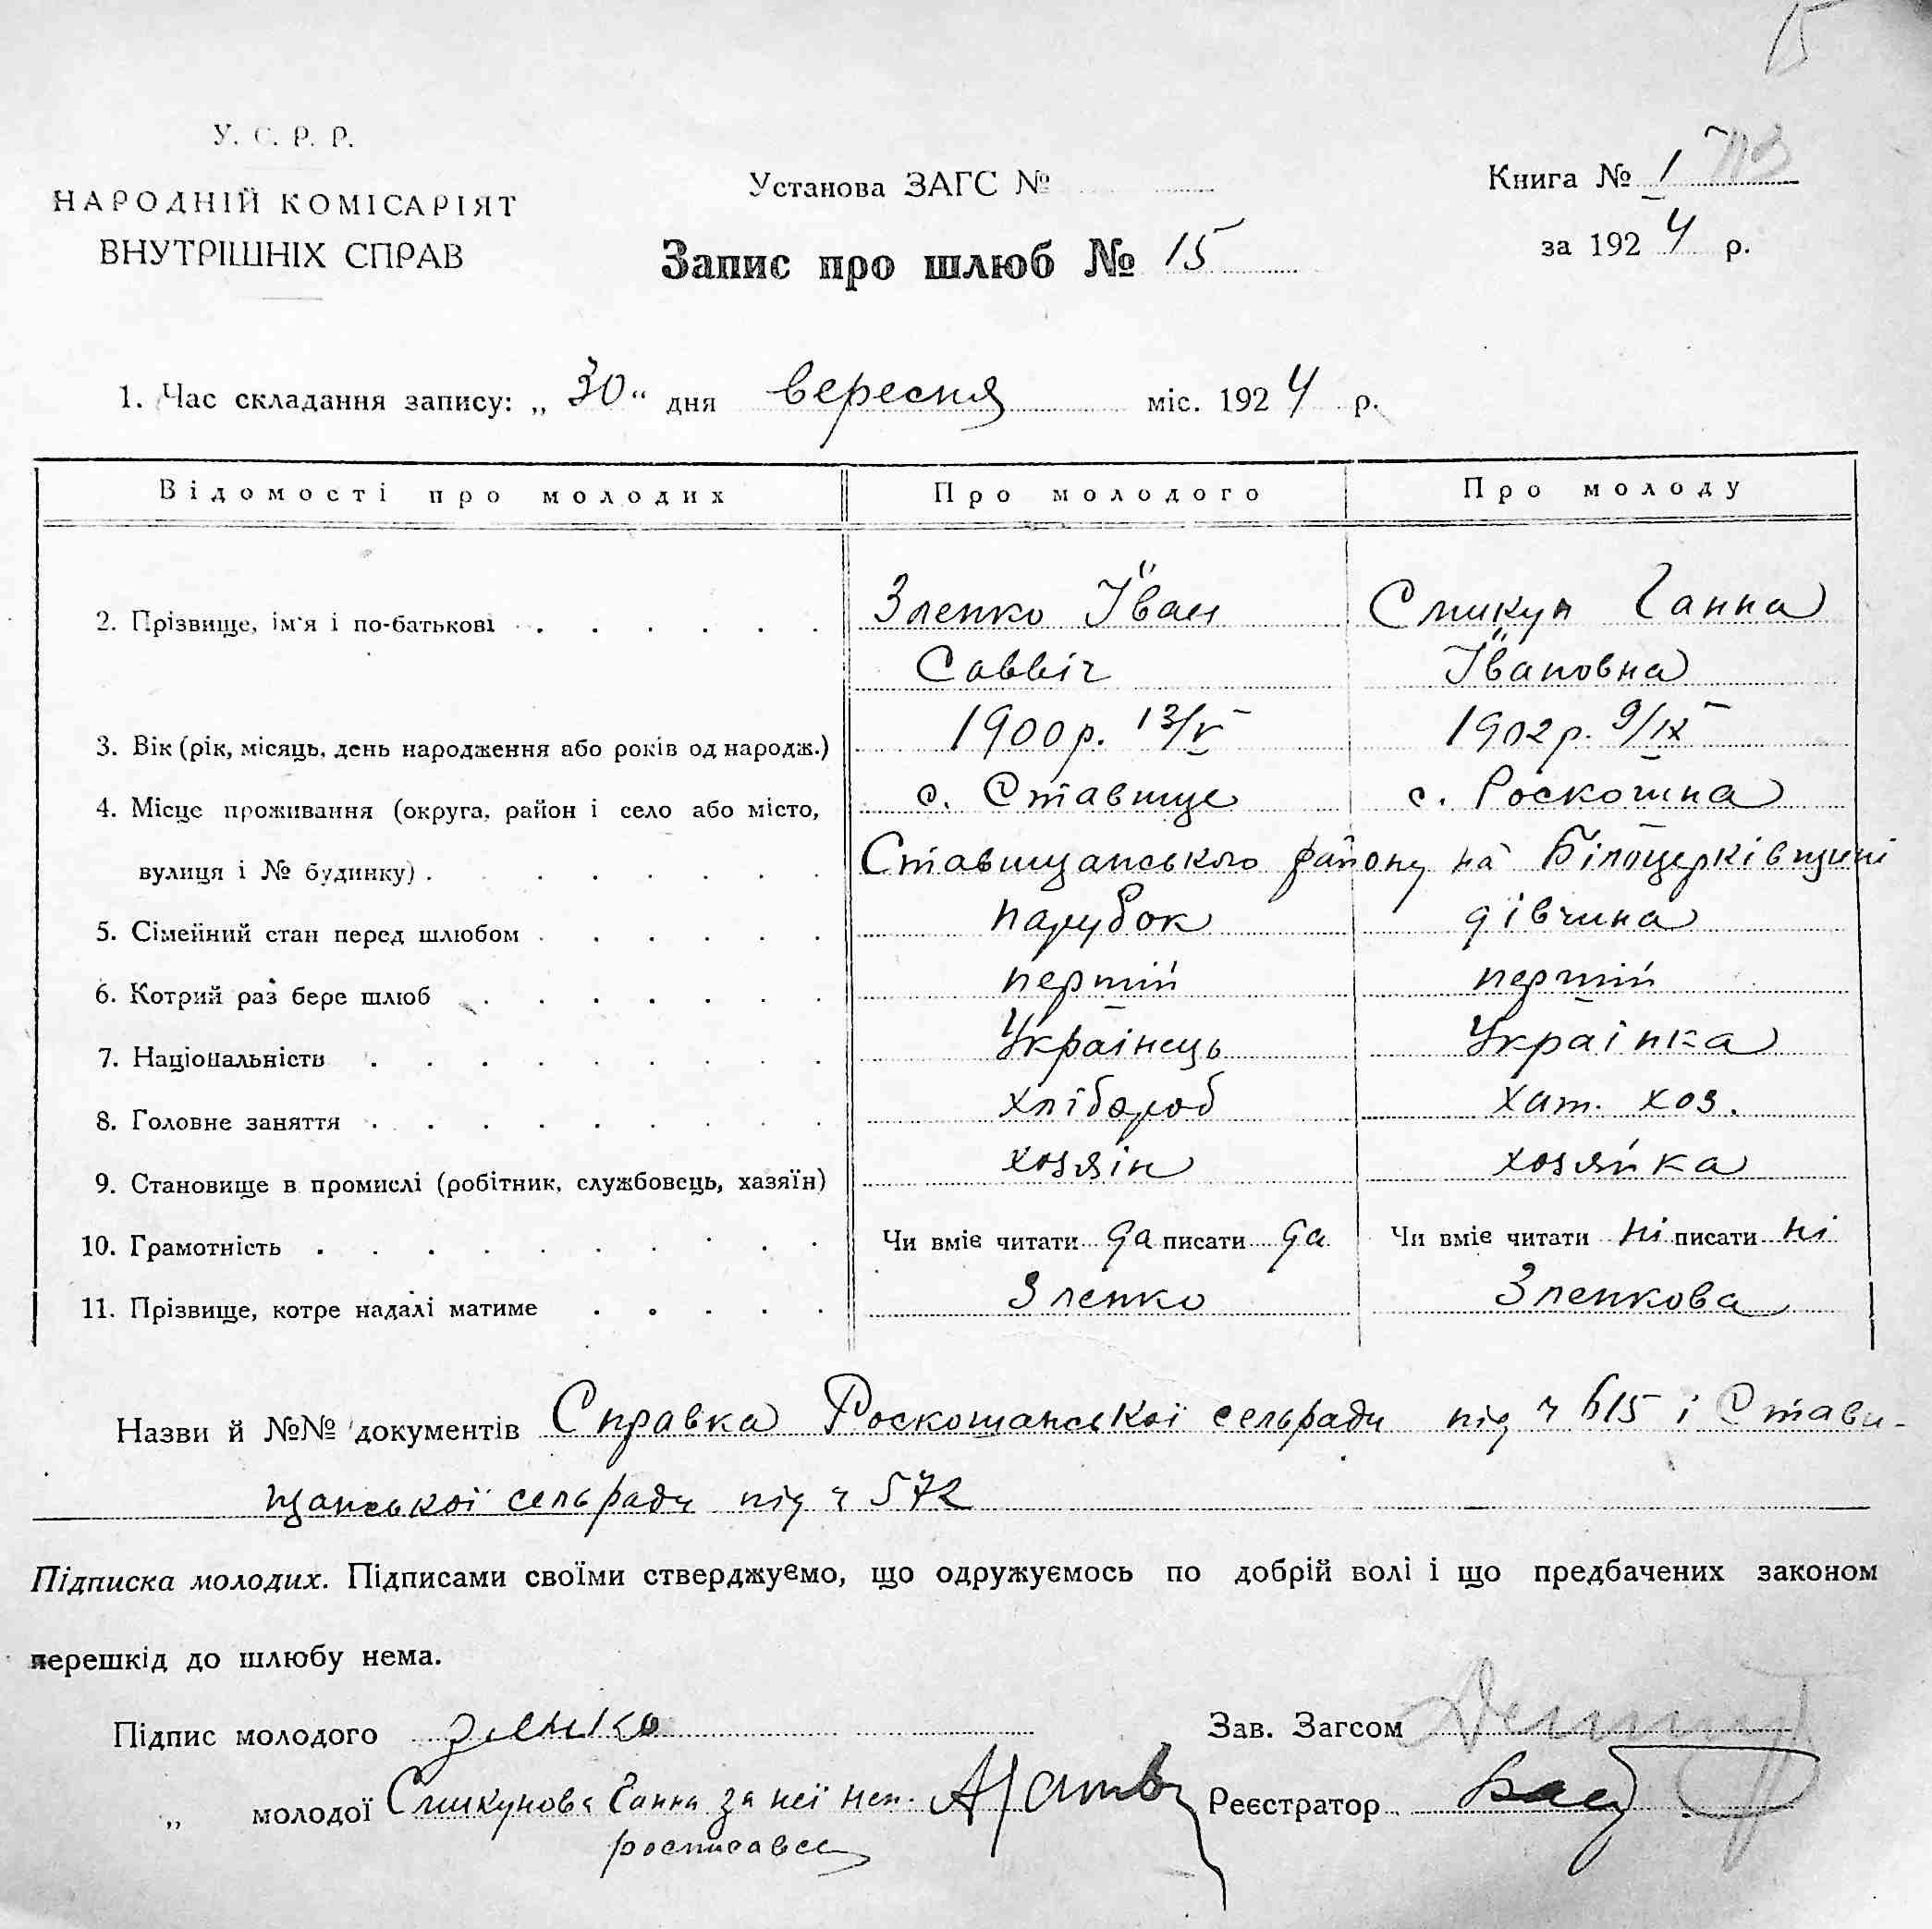 15
У. С. Р. Р.
НАРОДНІЙ КОМІСАРІЯТ
ВНУТРІШНІХ СПРАВ
Установа ЗАГС №
Запис про шлюб № 15
Книга № 1
за 1924 р.
1. Час складання запису: „30“ дня вересня міс. 1924 р.
Відомості про молодих Про молодого Про молоду
2. Прізвище, ім'я і по-батькові Зленко Іван Смикун Ганна
Саввіч Івановна
3. Вік (рік, місяць, день народження або років од народж.) 1900 р. 13/V 1902 р. 9/IX
4. Місце проживання (округа, район і село або місто, с. Ставище с. Роскошна
вулиця і № будинку) Ставищанського району на Білоцерківщині
5. Сімейний стан перед шлюбом парубок дівчина
6. Котрий раз бере шлюб перший перший
7. Національність Українець Українка
8. Головне заняття хлібороб хат. хоз.
9. Становище в промислі (робітник, службовець, хазяїн) хозяін хозяйка
10. Грамотність Чи вміє читати да писати да Чи вміє читати ні писати ні
11. Прізвище, котре надалі матиме Зленко Зленкова
Назви й №№ документів Справка Роскошанської сельради під ч 615 і Стави-
щанської сельради під ч 572
Підписка молодих. Підписами своїми стверджуємо, що одружуємось по добрій волі і що предбачених законом
перешкід до шлюбу нема.
Підпис молодого Зленко Зав. Загсом
„ молодої Смикунова Ганна за неї неп. Реєстратор
росписався